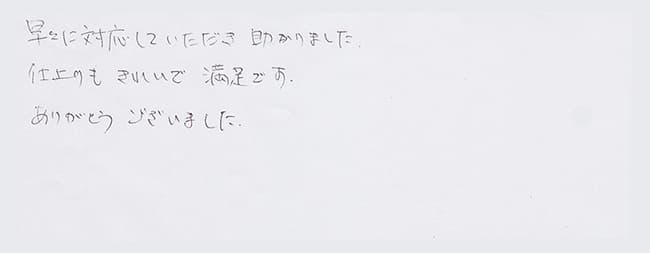 早々に対応していただき 助かりました.
仕上りも きれいで 満足です.
ありがとう ございました.